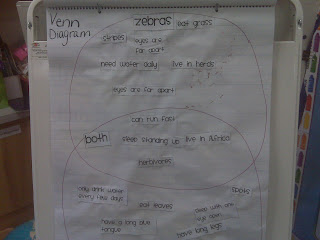 Venn
Diagram
zebras eat grass
stripes eyes are
far apart
need water daily live in herds
eyes are far apart
can run fast
both sleep standing up live in Africa
herbivores
only drink water
every few days
spots
eat leaves
sleep with one
eye open
have a long blue
tongue
have long legs